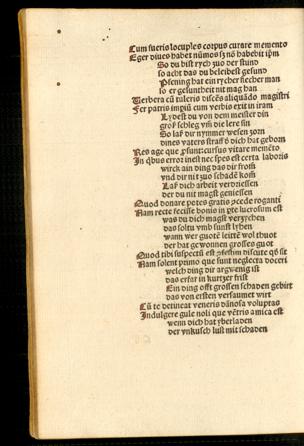 Cum fueris locuples corpus curare memento
Eger diues habet nūmos sʒ nō habebit ipm
So du bist rych zuo der stund
so acht das du beleibest gesund
Pfening hat ein rycher siecher man
so er gesuntheit nit mag han
Verbera cū tuleris discēs aliquādo magistri
Fer patris impiū cum verbis exit in iram
Lydest du von dem meister din
groß schleg vm̄ die lere sin
So laß dir nymmer wesen zorn
dines vaters straff d dich hat geborn
Res age que psunt: cursus vitare memēto
In qbus error inest nec spes est certa laboris
wirck ain ding das dir from̄
vnd dir nit zuo schadē kom̄
Laß dich arbeit verdriessen
der du nit magst geniessen
Quod donare potes gratis ꝯcede roganti
Nam recte fecisse bonis in pte lucrosum est
was du dich magst verzychen
das soltu vmb sunst lyhen
wann wer guotē leittē wol thuot
der hat gewonnen grosses guot
Quod tibi suspectū est ꝯfestim discute qd sit
Nam solent primo que sunt neglecta noceri
welch ding dir argwenig ist
das erfar in kurtzer frist
Ein ding offt grossen schaden gebirt
das von ersten versaumet wirt
Cū te detineat veneris dānosa voluptas
Indulgere gule noli que vētris amica est
wenn dich hat yberladen
der vnkusch lust mit schaden